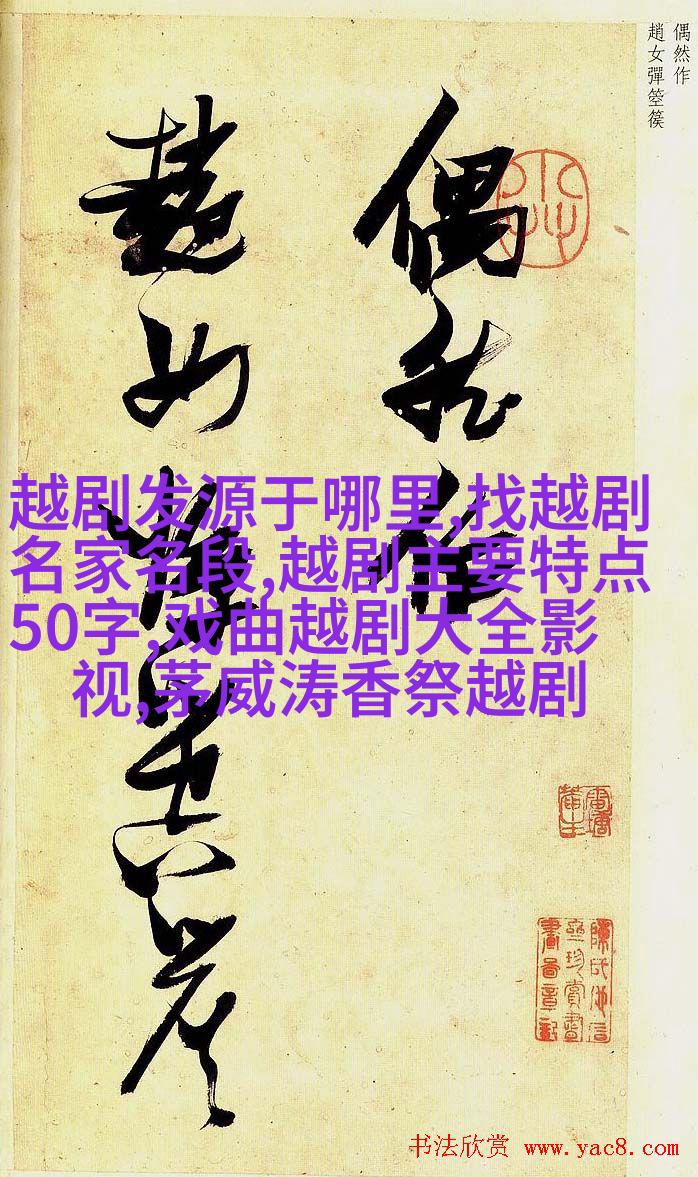 偶然作
趙女彈箜篌
偶然作
趙女彈箜篌
越剧发源于哪里,找越剧
名家名段,越剧主要特点
50字,戏曲越剧大全影
视,茅威涛香祭越剧
书法欣赏 www.yac8.com